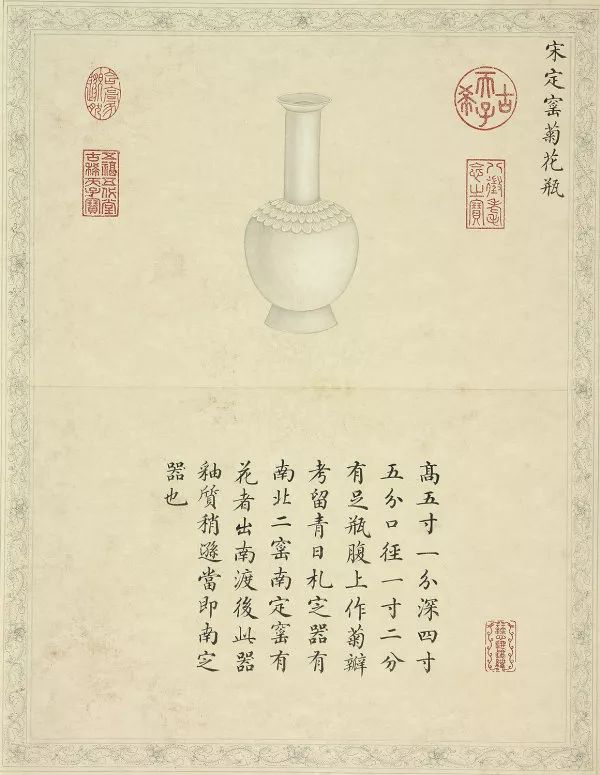 宋定窰菊花瓶
古希天子
八徵耄念之寶
五福五代堂古稀天子寶
高五寸一分深四寸
五分口徑一寸二分
有足瓶腹上作菊瓣
考留青日札定器有
南北二窰南定窰有
花者出南渡後此器
釉質稍遜當即南定
器也